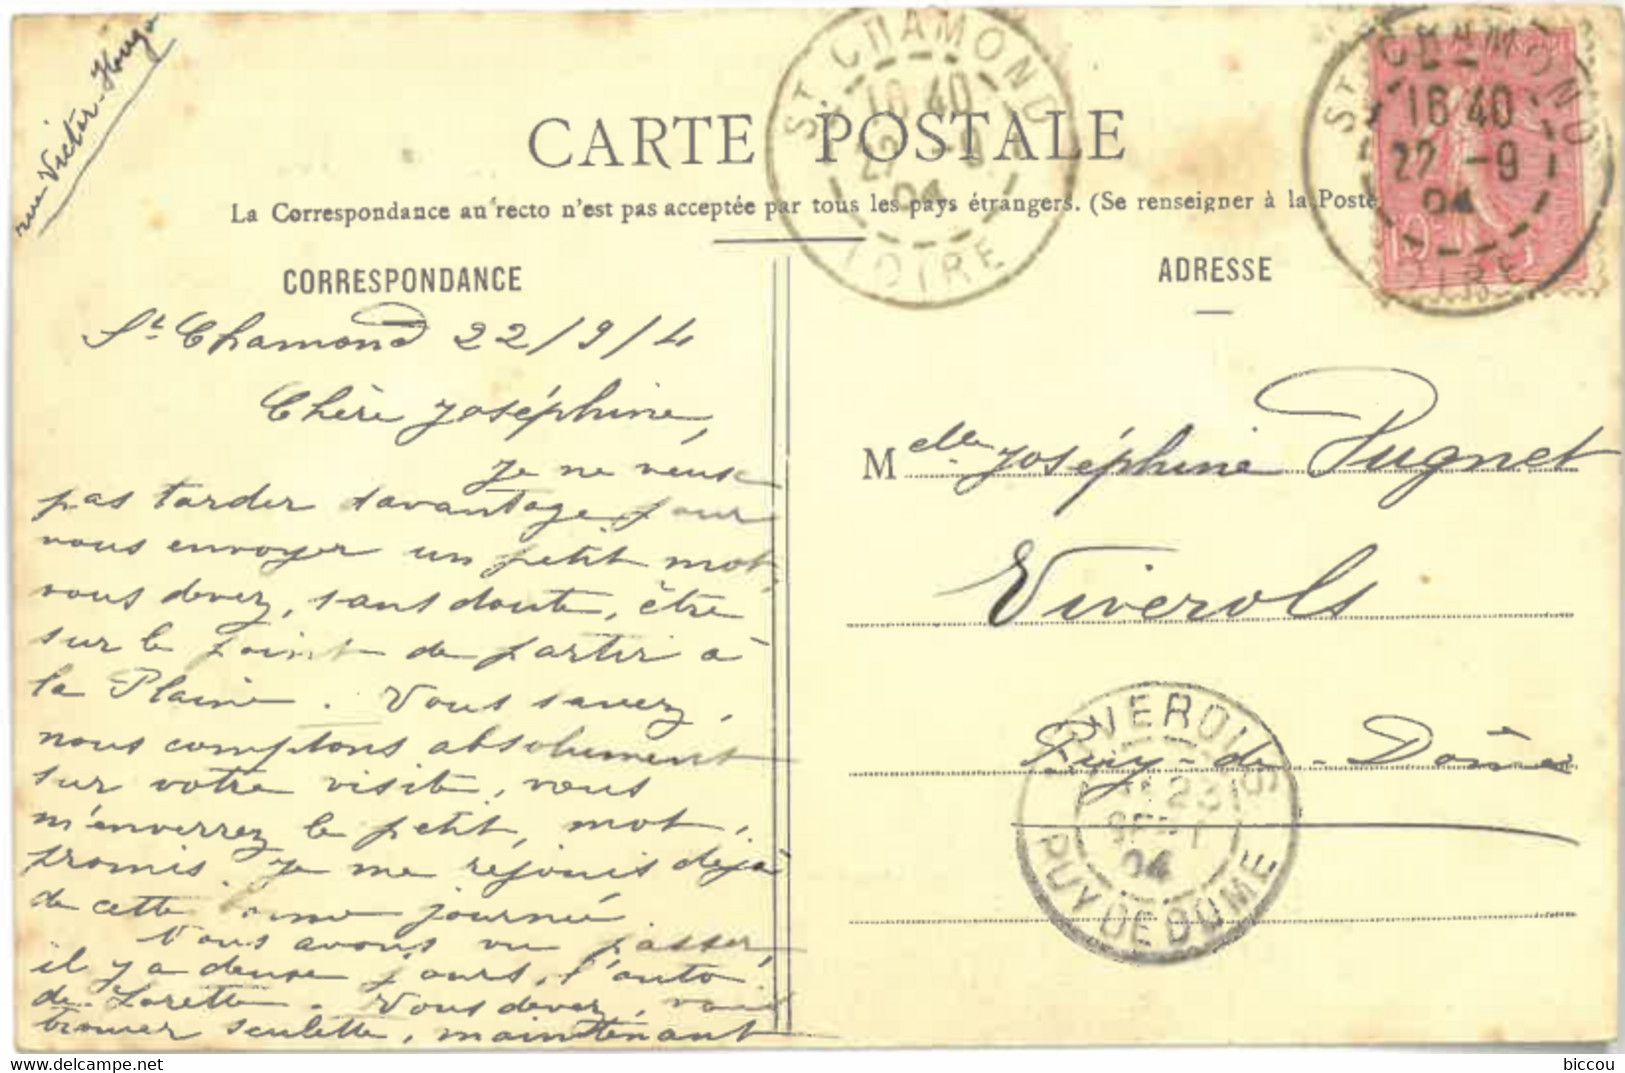 rue Victor-Hugo
CARTE POSTALE
La Correspondance au recto n'est pas acceptée par tous les pays étrangers. (Se renseigner à la Poste
CORRESPONDANCE
St Chamond 22/9/4
Chère Joséphine,
Je ne veux
pas tarder davantage pour
vous envoyer un petit mot,
vous devez, sans doute, être
sur le point de partir à
la Plaine. Vous savez,
nous comptons absolument
sur votre visite, vous
m'enverrez le petit, mot,
promis. Je me rejouis déjà
de cette journée
Vous avons vu passer,
il y a deux jours, l'auto
de Lorette. Vous devez, vous
trouver seulette, maintenant
ADRESSE
Melle Joséphine Pugnet
Viverols
Puy-de-Dôme
ST CHAMOND
16 40
22 -9
04
LOIRE
ST CHAMOND
16 40
22 -9
04
LOIRE
10
VIVEROLS
23
SEPT
04
PUY DE DOME
biccou